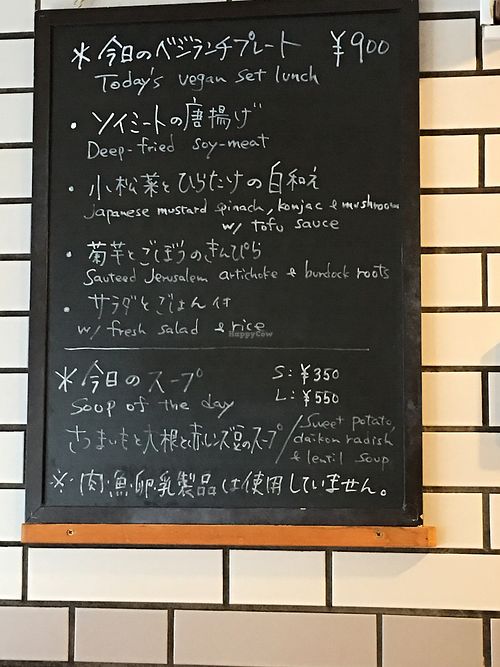 ＊今日のベジランチプレート ¥900
Today's vegan set lunch
・ソイミートの唐揚げ
Deep-fried soy-meat
・小松菜とひらたけの白和え
Japanese mustard spinach, konjac & mushroom
w/ tofu sauce
・菊芋とごぼうのきんぴら
Sauteed Jerusalem artichoke & burdock roots
・サラダとごはん付
w/ fresh salad & rice
HappyCow
＊今日のスープ S: ¥350
L: ¥550
Soup of the day
さつまいもと大根と赤レンズ豆のスープ/Sweet potato,
daikon radish
& lentil soup
※肉・魚・卵・乳製品は使用していません。